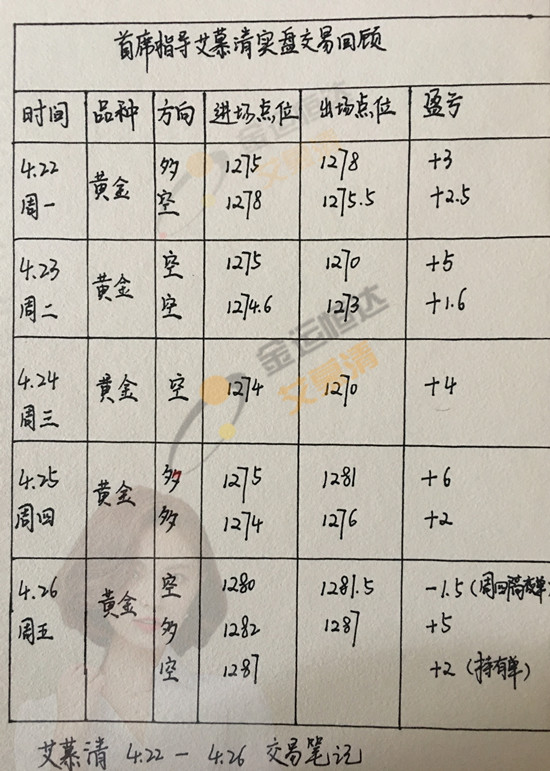 首席指导艾慕清实盘交易回顾
时间 品种 方向 进场点位 出场点位 盈亏
4.22 周一 黄金 多 1275 1278 +3
空 1278 1275.5 +2.5
4.23 周二 黄金 空 1275 1270 +5
空 1274.6 1273 +1.6
4.24 周三 黄金 空 1274 1270 +4
4.25 周四 黄金 多 1275 1281 +6
多 1274 1276 +2
4.26 周五 黄金 空 1280 1281.5 -1.5 (周四隔夜单)
多 1282 1287 +5
空 1287 +2 (持有单)
艾慕清 4.22 - 4.26 交易笔记
金运恒达
艾慕清
金运恒达
艾慕清